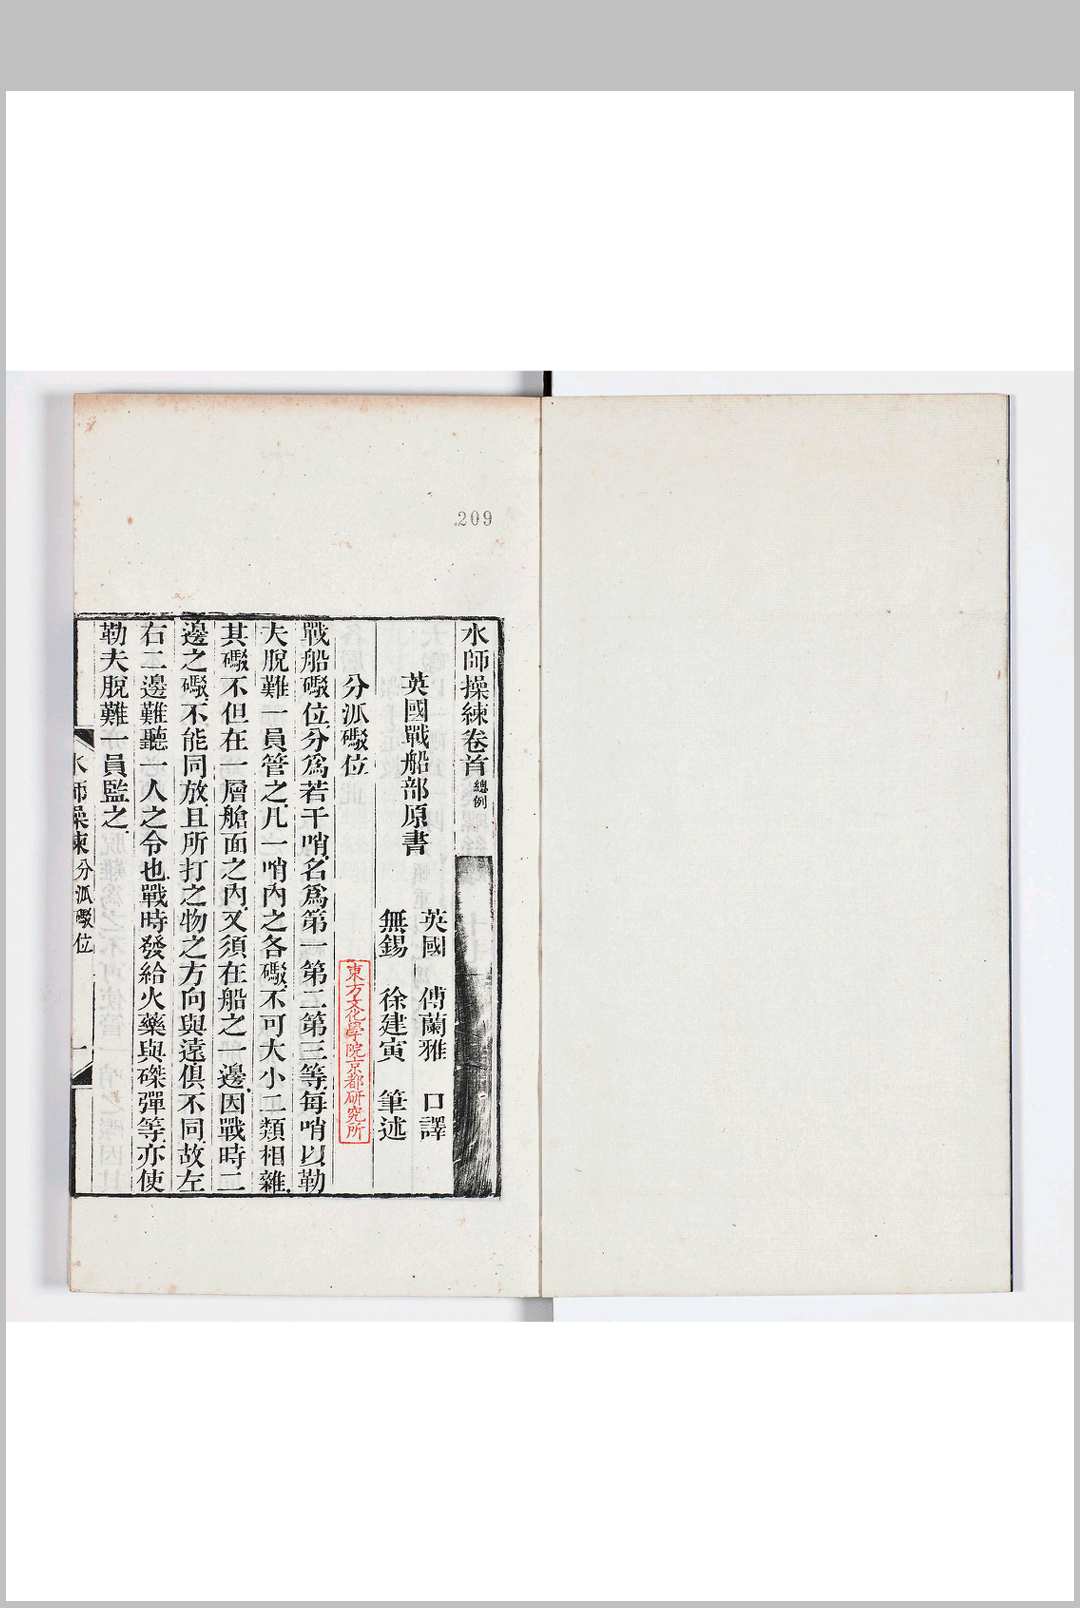 209
水師操練卷首總例
英國戰船部原書
英國 傅蘭雅 口譯
無錫 徐建寅 筆述
分派礮位
東方文化學院京都研究所
戰船礮位分爲若干哨名爲第一第二第三等每哨以勒
夫脫難一員管之凡一哨內之各礮不可大小二類相雜
其礮不但在一層艙面之內又須在船之一邊因戰時二
邊之礮不能同放且所打之物之方向與遠俱不同故左
右二邊難聽一人之令也戰時發給火藥與磔彈等亦使
勒夫脫難一員監之
水師操練 分派礮位 一